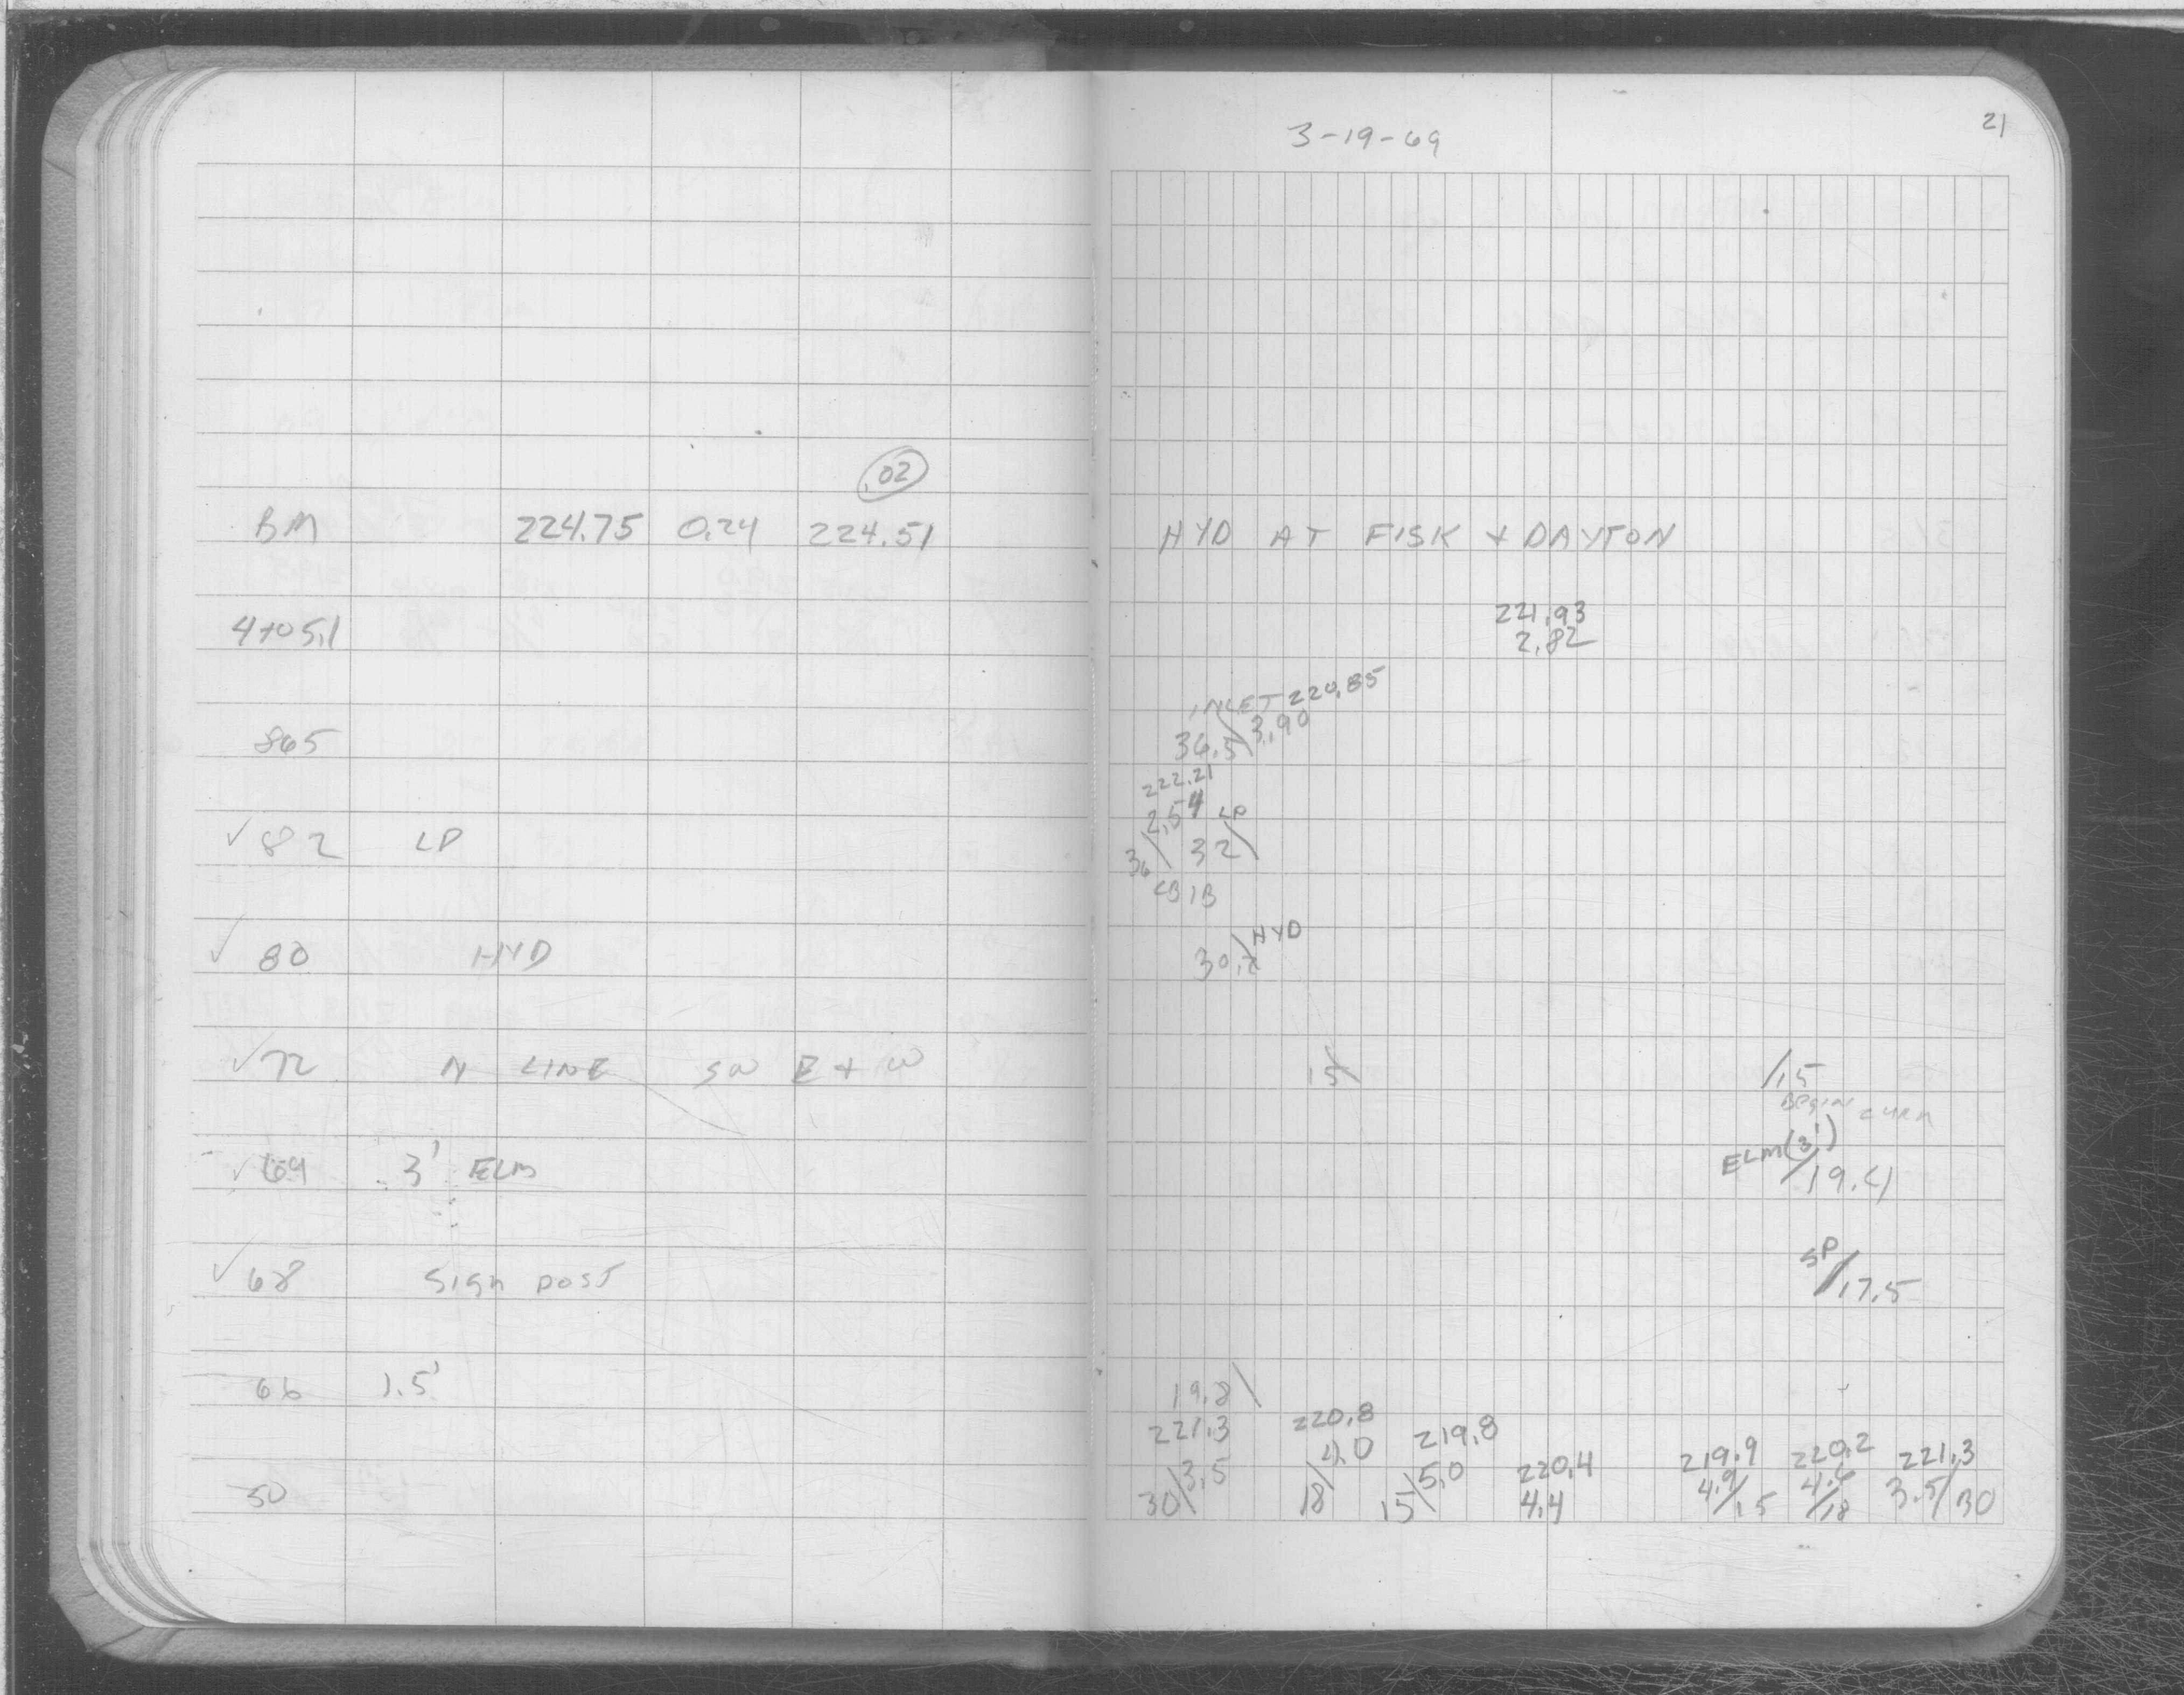 3-19-69
21
.02
BM 224.75 0.24 224.51 HYD AT FISK + DAYTON
4+05.1 221.93
2.82
INLET 220.85
865 36.5 \ 3.90
222.21
2.54 LP
✓ 82 LP 36 \ 32 \
CB 1B
✓ 80 HYD 30.2 \ HYD
✓ 72 N LINE SW E + W 15 \ / 15
BEGIN CURB
ELM (3')
✓ 69 3' ELM / 19.4
✓ 68 Sign post SP / 17.5
66 1.5' 19.8 \
221.3 220.8 219.8 220.4 219.9 220.2 221.3
50 30 \ 3.5 18 / 4.0 15 \ 5.0 4.4 4.9 / 15 4.6 / 18 3.5 / 30